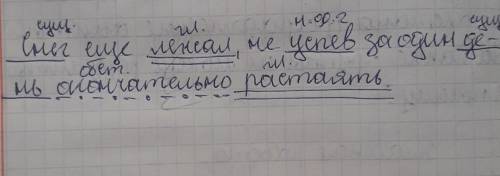 сущ. гл. н.ф.г. сущ.
Снег еще лежал, не успев за один де-
обст. гл.
нь окончательно растаять.